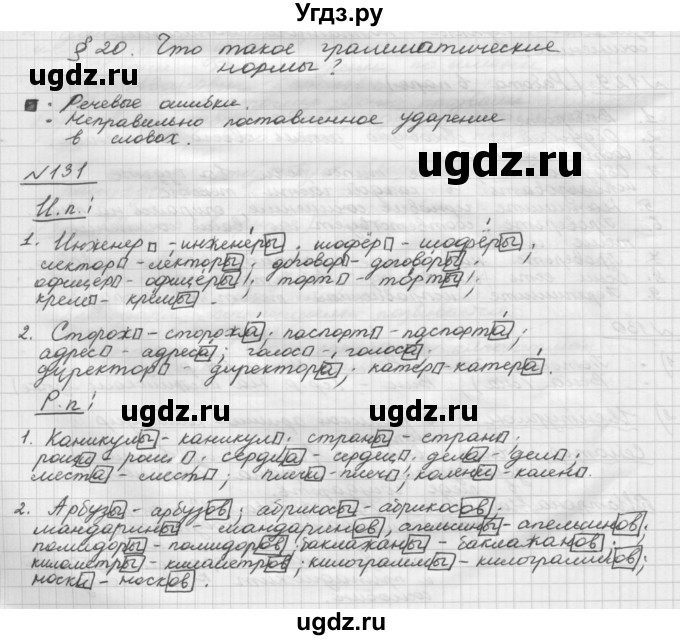 Угдз.ру
§ 20. Что такое грамматические
нормы?
• Речевые ошибки.
• Неправильно поставленное ударение
в словах.
ugdz.ru ugdz.ru
№131
И.п.:
1. Инженер - инженеры, шофёр - шофёры;
лектор - лекторы; договор - договоры;
офицер - офицеры; торт - торты;
крем - кремы.
2. Сторож - сторожа; паспорт - паспорта;
адрес - адреса; голос - голоса;
директор - директора; катер - катера.
Р.п:
ugdz.ru ugdz.ru
1. Каникулы - каникул; страны - стран;
рощи - рощ; сердца - сердец; дела - дел;
места - мест; плечи - плеч; колени - колен.
2. Арбузы - арбузов; абрикосы - абрикосов;
мандарины - мандаринов, апельсины - апельсинов;
помидоры - помидоров; баклажаны - баклажанов;
километры - километров; килограммы - килограммов;
носки - носков.
ugdz.ru ugdz.ru